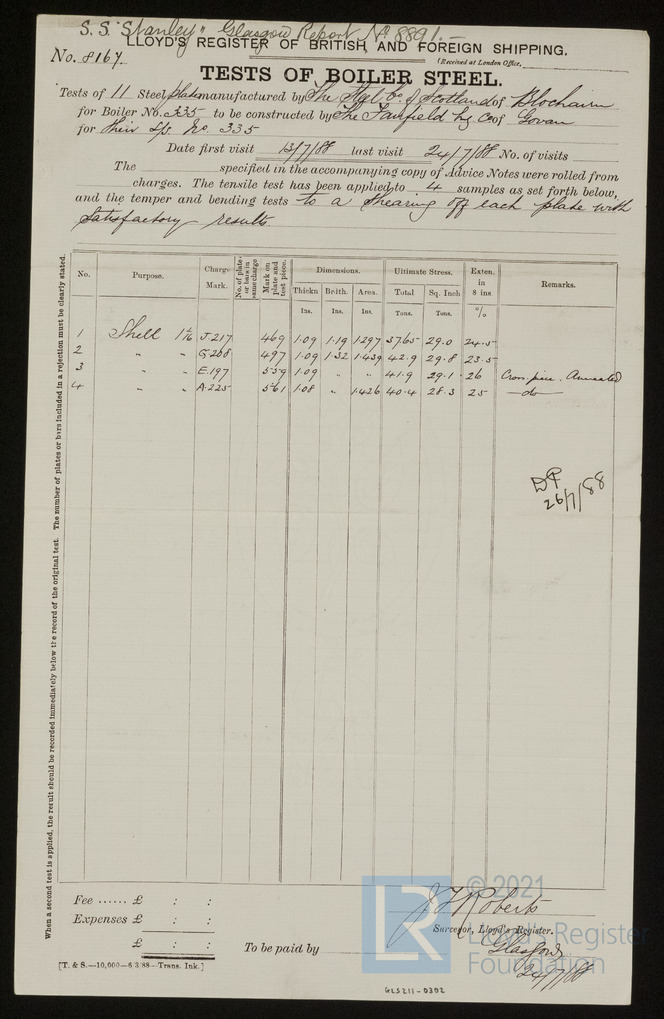 S.S. "Stanley" Glasgow Report No 8891.—
LLOYD'S REGISTER OF BRITISH AND FOREIGN SHIPPING.
No. 8167.
(Received at London Office,
TESTS OF BOILER STEEL.
Tests of 11 Steel plates manufactured by The Steel Co. of Scotland of Blochairn
for Boiler No. 335 to be constructed by The Fairfield Co of Govan
for their S/s No. 335
Date first visit 13/7/88 last visit 24/7/88 No. of visits
The specified in the accompanying copy of Advice Notes were rolled from
charges. The tensile test has been applied to 4 samples as set forth below,
and the temper and bending tests to a shearing off each plate with
satisfactory results.
No. Purpose. Charge Mark. No. of plates or bars in same charge Mark on plate and test piece. Dimensions. Ultimate Stress. Exten. in 8 ins Remarks.
Thickn Brdth. Area. Total Sq. Inch
Ins. Ins. Ins. Tons. Tons. %
1 Shell 1 1/16 J.217 469 1.09 1.19 1.297 37.65 29.0 24.5
2 " " G.208 497 1.09 1.32 1.439 42.9 29.8 23.5
3 " " E.197 559 1.09 " " 41.9 29.1 26 Cross piece. Annealed
4 " " A.225 561 1.08 " 1.426 40.4 28.3 25 —do—
26/7/88
When a second test is applied, the result should be recorded immediately below the record of the original test. The number of plates or bars included in a rejection must be clearly stated.
Fee ...... £ : :
Expenses £ : :
£ : :
To be paid by
J T Roberts
Surveyor, Lloyd's Register.
Glasgow
24/7/88
[T. & S.—10,000—6/3/88—Trans. Ink.]
© 2021
LR
Lloyd's Register
Foundation
GLS211-0302